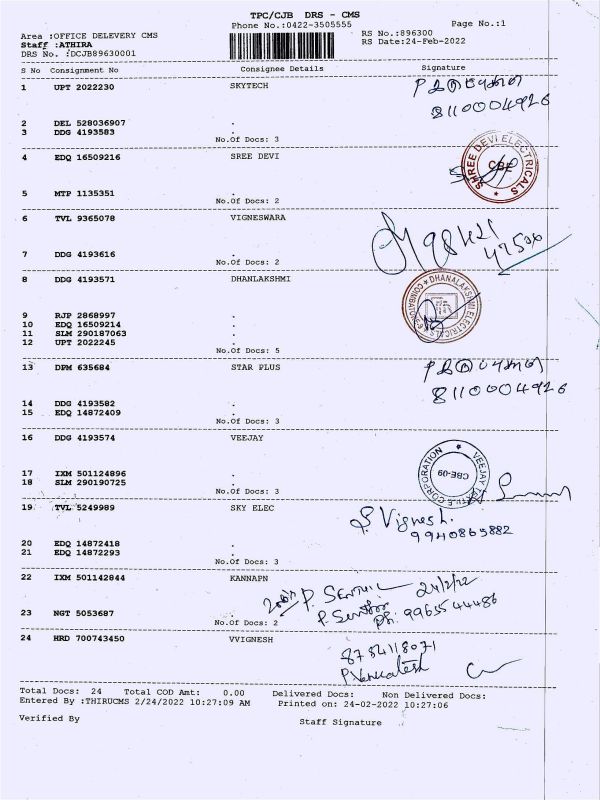 TPC/CJB DRS - CMS
Phone No.:0422-3505555
Page No.:1
Area :OFFICE DELEVERY CMS
RS No.:896300
Staff :ATHIRA
RS Date:24-Feb-2022
DRS No. :DCJB89630001
S No Consignment No Consignee Details Signature
1 UPT 2022230 SKYTECH
8110004926
2 DEL 528036907 .
3 DDG 4193583 .
No.Of Docs: 3
4 EDQ 16509216 SREE DEVI
SHREE DEVI ELECTRICALS
CBE
5 MTP 1135351 .
No.Of Docs: 2
6 TVL 9365078 VIGNESWARA
7 DDG 4193616 .
No.Of Docs: 2
8 DDG 4193571 DHANLAKSHMI
DHANALAKSHMI ELECTRICALS
9 RJP 2868997 .
10 EDQ 16509214 .
11 SLM 290187063 .
12 UPT 2022245 .
No.Of Docs: 5
13 DPM 635684 STAR PLUS
8110004926
14 DDG 4193582 .
15 EDQ 14872409 .
No.Of Docs: 3
16 DDG 4193574 VEEJAY
CBE-09
17 IXM 501124896 .
18 SLM 290190725 .
No.Of Docs: 3
19 TVL 5249989 SKY ELEC
S. Vignesh.
9940865882
20 EDQ 14872418 .
21 EDQ 14872293 .
No.Of Docs: 3
22 IXM 501142844 KANNAPN
24/2/22
Ph: 9965544486
23 NGT 5053687 .
No.Of Docs: 2
24 HRD 700743450 VVIGNESH
8754118071
P. Venkatesh
Total Docs: 24 Total COD Amt: 0.00 Delivered Docs: Non Delivered Docs:
Entered By :THIRUCMS 2/24/2022 10:27:09 AM Printed on: 24-02-2022 10:27:06
Verified By Staff Signature